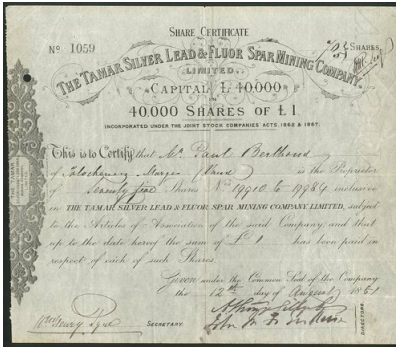 SHARE CERTIFICATE
No 1059
75 SHARES
THE TAMAR SILVER LEAD & FLUOR SPAR MINING COMPANY
LIMITED.
CAPITAL £40,000
IN
40,000 SHARES OF £1
INCORPORATED UNDER THE JOINT STOCK COMPANIES ACTS, 1862 & 1867.
This is to Certify that Mr. Paul Berthoud
of Morges (Vaud) is the Proprietor
of Seventy five Shares No 19910 to 19984 inclusive
IN THE TAMAR SILVER LEAD & FLUOR SPAR MINING COMPANY LIMITED, subject
to the Articles of Association of the said Company, and that
up to the date hereof the sum of £ 1 has been paid in
respect of each of such Shares.
Given under the Common Seal of the Company
the 12th day of August 1881
SECRETARY
DIRECTORS